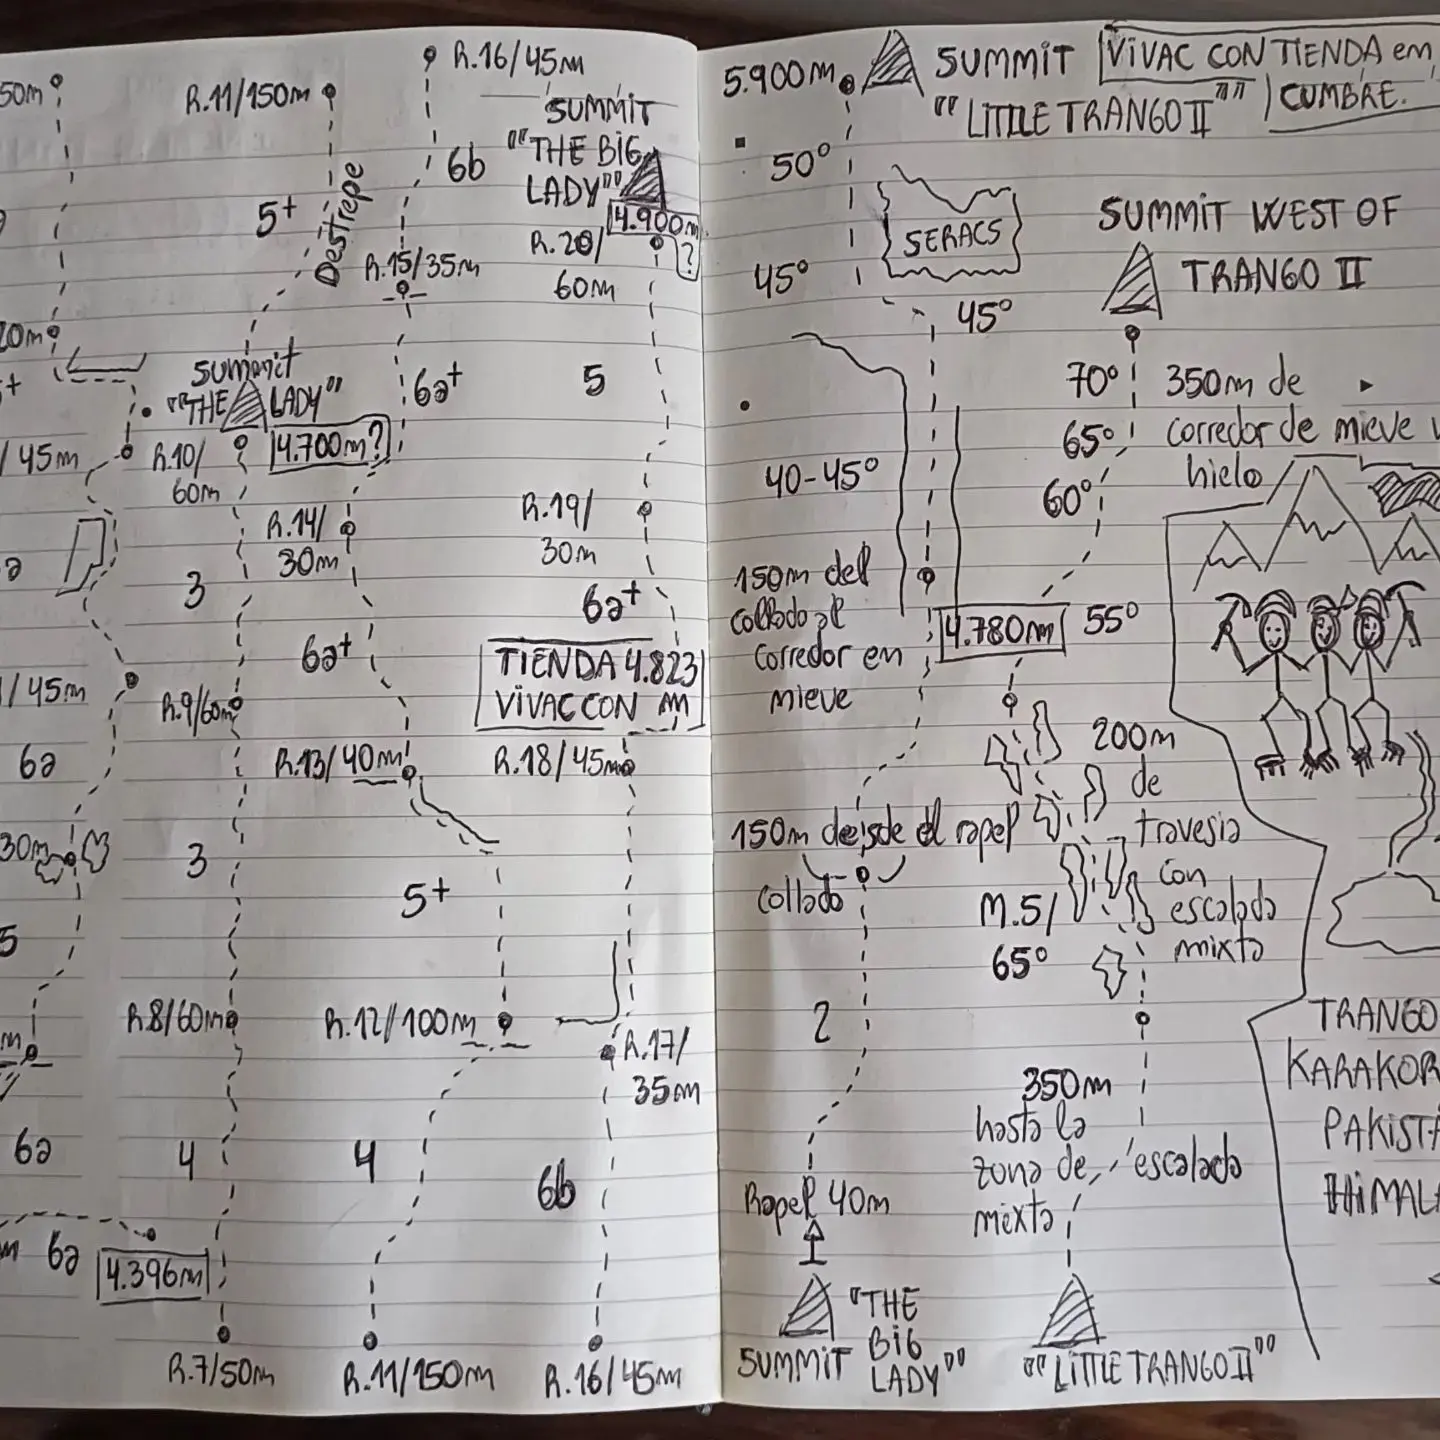 50m
20m
/ 45m
/ 45m
6a
30m
5
6a
m 6a
4.396m
R.11/150m
5+
Destrepe
summit
"THE LADY"
4.700m?
R.10/
60m
3
R.9/60m
3
R.8/60m
4
R.7/50m
R.16/45m
6b
R.15/35m
6a+
R.14/
30m
6a+
R.13/40m
5+
R.12/100m
4
R.11/150m
SUMMIT
"THE BIG
LADY"
4.900m
?
R.20/
60m
5
R.19/
30m
6a+
TIENDA 4.823
VIVAC CON m
R.18/45m
R.17/
35m
6b
R.16/45m
5.900m SUMMIT
"LITTLE TRANGO II"
VIVAC CON TIENDA em
CUMBRE.
50°
SERACS
45°
45°
40-45°
150m del
collado al
corredor em
mieve
150m desde el rapel
collado
2
Rapel 40m
"THE
BIG
SUMMIT LADY"
SUMMIT WEST OF
TRANGO II
70°
350m de
65°
corredor de mieve
hielo
60°
4.780m
55°
200m
de
travesia
con
escalada
mixta
M.5/
65°
350m
hasta la
zona de escalada
mixta
"LITTLE TRANGO II"
TRANGO
KARAKOR
PAKISTA
HIMAL